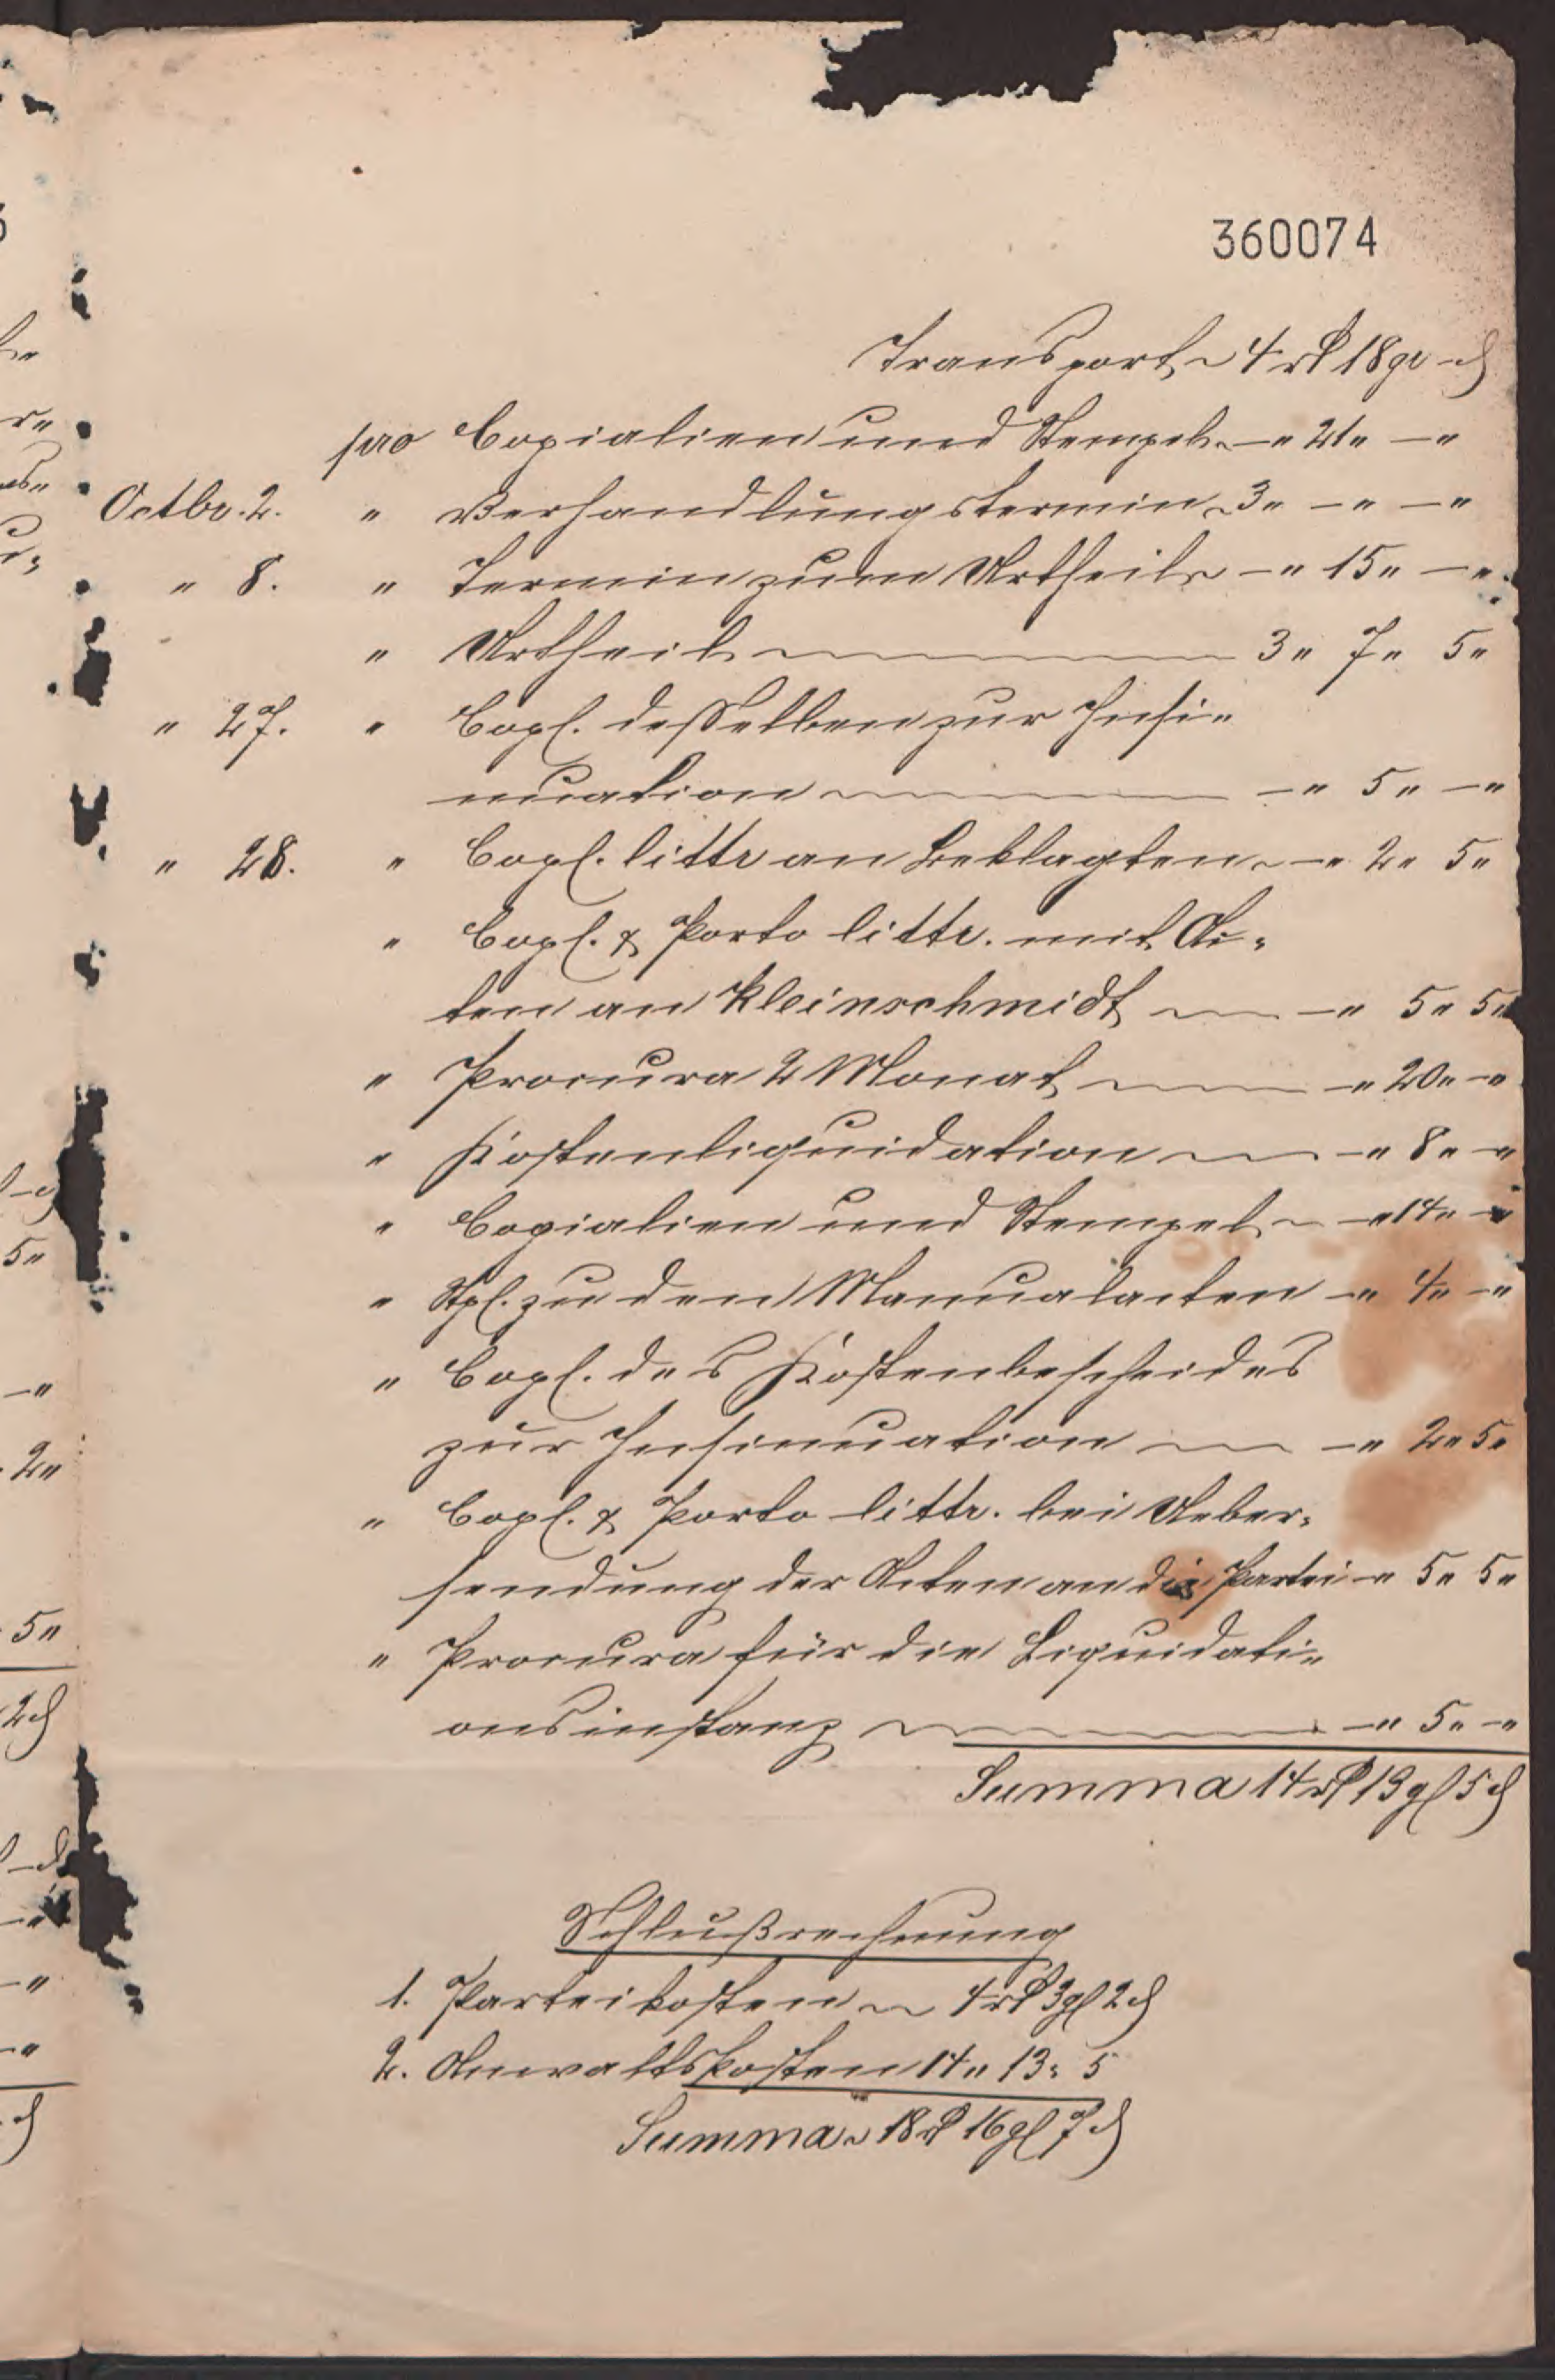 360074
Transport 4 rℓ 18 gr - ₰
pro Copialien und Stempel -" 21" -"
Octbr. 2. " Verhandlungstermin 3" -" -"
" 8. " Termin zum Urtheil -" 15" -"
" Urtheil 3" 7" 5"
" 27. " Copl. desselben zur Insi=
nuation -" 5" -"
" 28. " Copl. littr an Beklagten -" 2" 5"
" Copl. & Porto littr. mit Ac=
ten an Kleinschmidt -" 5" 5"
" Procura 2 Monat -" 20" -"
" Kostenliquidation -" 8" -"
" Copialien und Stempel -" 14" -"
" Stpl. zu den Manualacten -" 4" -"
" Copl. des Kostenbescheides
zur Insinuation -" 2" 5"
" Copl. & Porto littr. bei Ueber=
sendung der Acten an die Partei -" 5" 5"
" Procura für die Liquidati=
onsinstanz -" 5" -"
Summa 14 rℓ 13 gl 5 ₰
Schlußrechnung
1. Parteikosten 4 rℓ 3 gl 2 ₰
2. Anwaltskosten 14" 13" 5
Summa 18 rℓ 16 gl 7 ₰